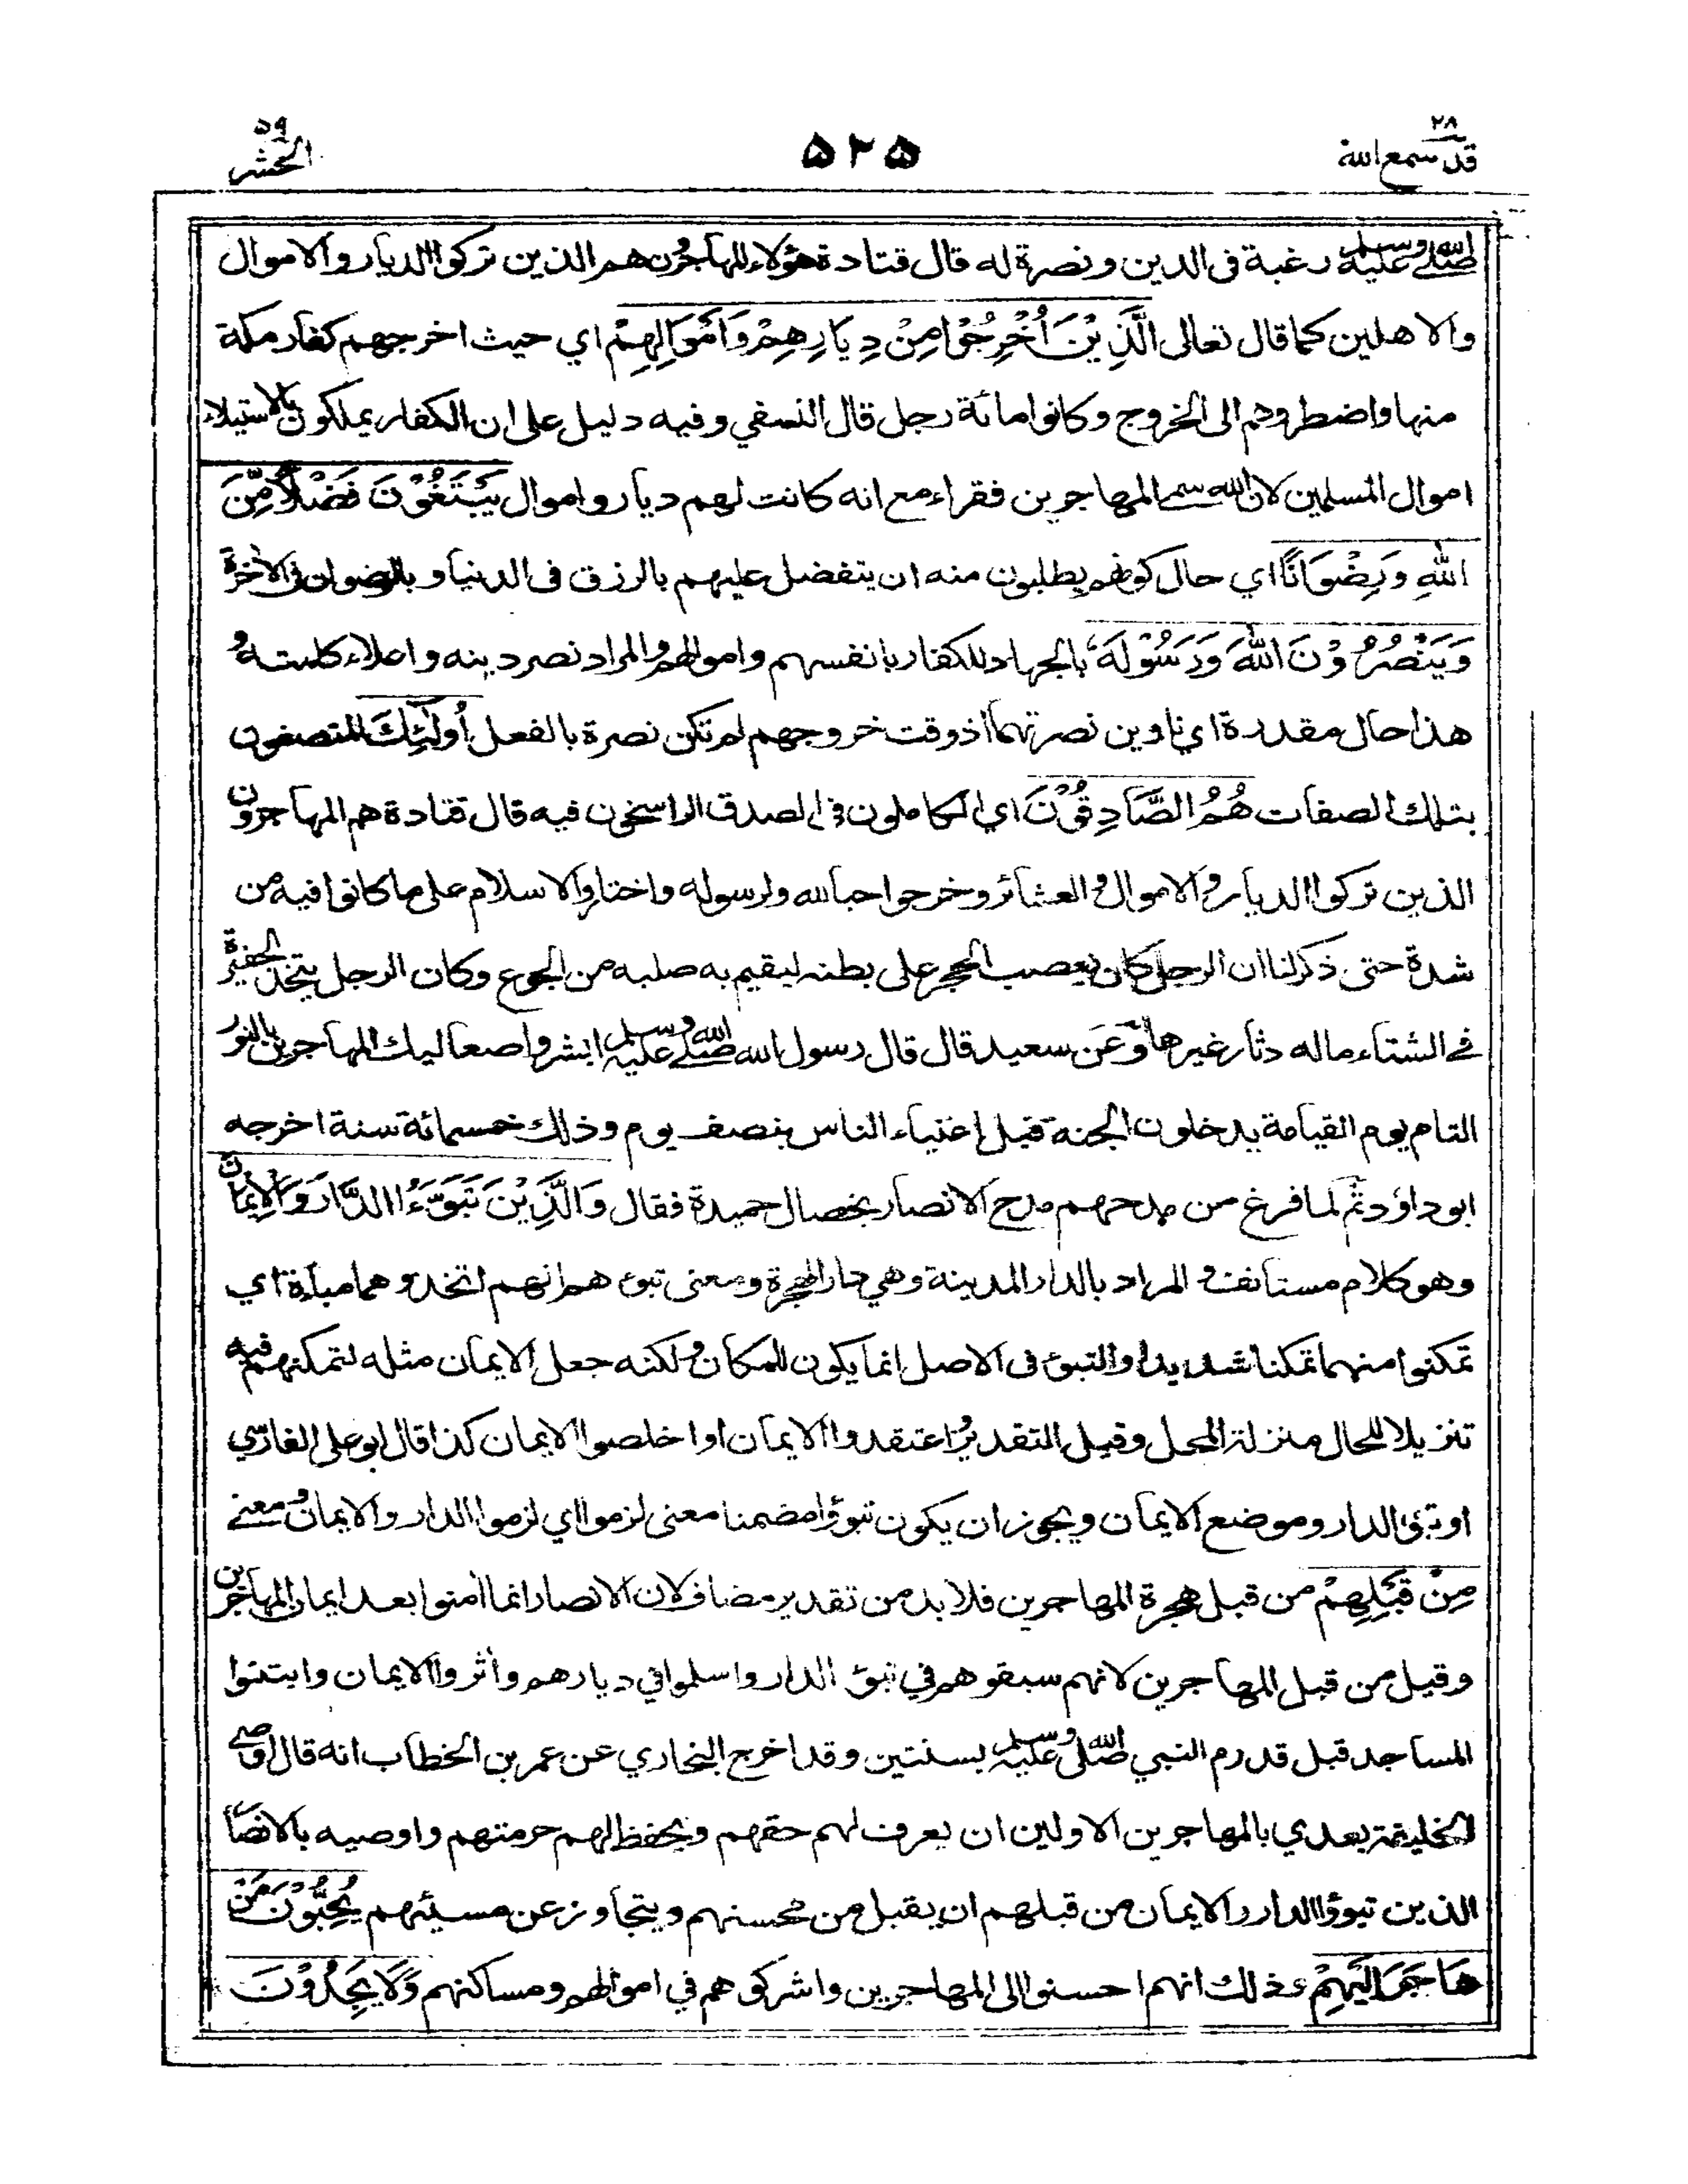 ٢٨
قد سمع الله
٥٢٥
٥٩
الحشر
صلى الله عليه وسلم رغبة فى الدين ونصرة له قال قتادة هؤلاء المهاجرون هم الذين تركوا الديار والاموال
والاهلين كما قال تعالى الَّذِيْنَ اُخْرِجُوْا مِنْ دِيَارِهِمْ وَاَمْوَالِهِمْ اي حيث اخرجهم كفار مكة
منها واضطروهم الى الخروج وكانوا مائة رجل قال النسفي وفيه دليل على ان الكفار يملكون بالاستيلاء
اموال المسلمين لان الله سمى المهاجرين فقراء مع انه كانت لهم ديار واموال يَبْتَغُوْنَ فَضْلًا مِّنَ
اللهِ وَرِضْوَانًا اي حال كونهم يطلبون منه ان يتفضل عليهم بالرزق فى الدنيا وبالرضوان فى الآخرة
وَيَنْصُرُوْنَ اللهَ وَرَسُوْلَهُ بالجهاد للكفار بانفسهم واموالهم والمراد نصر دينه واعلاء كلمته و
هذا حال مقدرة اي ناوين نصرتهما اذ وقت خروجهم لم تكن نصرة بالفعل أُولٰئِكَ المتصفون
بتلك الصفات هُمُ الصَّادِقُوْنَ اي الكاملون فى الصدق الراسخون فيه قال قتادة هم المهاجرون
الذين تركوا الديار والاموال والعشائر وخرجوا حبا لله ولرسوله واختاروا الاسلام على ما كانوا فيه من
شدة حتى ذكر لنا ان الرجل كان يعصب الحجر على بطنه ليقيم به صلبه من الجوع وكان الرجل يتخذ الحفيرة
في الشتاء ماله دثار غيرها وعن سعيد قال قال رسول الله صلى الله عليه وسلم ابشروا صعاليك المهاجرين بالنور
التام يوم القيامة يدخلون الجنة قبل اغنياء الناس بنصف يوم وذلك خمسمائة سنة اخرجه
ابوداؤد ثم لما فرغ من مدحهم مدح الانصار بخصال حميدة فقال وَالَّذِيْنَ تَبَوَّءُا الدَّارَ وَالْاِيْمَانَ
وهو كلام مستانف والمراد بالدار المدينة وهي دار الهجرة ومعنى تبوءهم انهم اتخذوهما مباءة اي
تمكنوا منهما تمكنا شديدا والتبوئ فى الاصل انما يكون للمكان ولكنه جعل الايمان مثله لتمكنهم فيه
تنزيلا للحال منزلة المحل وقيل التقدير واعتقدوا الايمان او اخلصوا الايمان كذا قال ابو علي الفارسي
او تبوئ الدار وموضع الايمان ويجوز ان يكون تبوؤا مضمنا معنى لزموا اي لزموا الدار والايمان ومعنى
مِنْ قَبْلِهِمْ من قبل هجرة المهاجرين فلا بد من تقدير مضاف لان الانصار انما اٰمنوا بعد ايمان المهاجرين
وقيل من قبل المهاجرين لانهم سبقوهم في تبوئ الدار واسلموا في ديارهم واٰثروا الايمان وابتنوا
المساجد قبل قدوم النبي صلى الله عليه وسلم بسنتين وقد اخرج البخاري عن عمر بن الخطاب انه قال اوصى
الخليفة بعدي بالمهاجرين الاولين ان يعرف لهم حقهم ويحفظ لهم حرمتهم واوصيه بالانصار
الذين تبوؤا الدار والايمان من قبلهم ان يقبل من محسنهم ويتجاوز عن مسيئهم يُحِبُّوْنَ مَنْ
هَاجَرَ اِلَيْهِمْ وذلك انهم احسنوا الى المهاجرين واشركوهم في اموالهم ومساكنهم وَلَا يَجِدُوْنَ